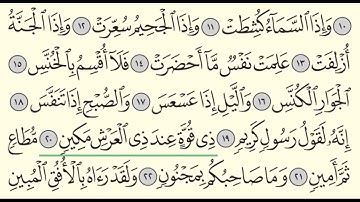 ١٠ وَإِذَا ٱلسَّمَآءُ كُشِطَتْ ١١ وَإِذَا ٱلْجَحِيمُ سُعِّرَتْ ١٢ وَإِذَا ٱلْجَنَّةُ
أُزْلِفَتْ ١٣ عَلِمَتْ نَفْسٌ مَّآ أَحْضَرَتْ ١٤ فَلَآ أُقْسِمُ بِٱلْخُنَّسِ ١٥
ٱلْجَوَارِ ٱلْكُنَّسِ ١٦ وَٱلَّيْلِ إِذَا عَسْعَسَ ١٧ وَٱلصُّبْحِ إِذَا تَنَفَّسَ ١٨
إِنَّهُۥ لَقَوْلُ رَسُولٍ كَرِيمٍ ١٩ ذِى قُوَّةٍ عِندَ ذِى ٱلْعَرْشِ مَكِينٍ ٢٠ مُّطَاعٍ
ثَمَّ أَمِينٍ ٢١ وَمَا صَاحِبُكُم بِمَجْنُونٍ ٢٢ وَلَقَدْ رَءَاهُ بِٱلْأُفُقِ ٱلْمُبِينِ